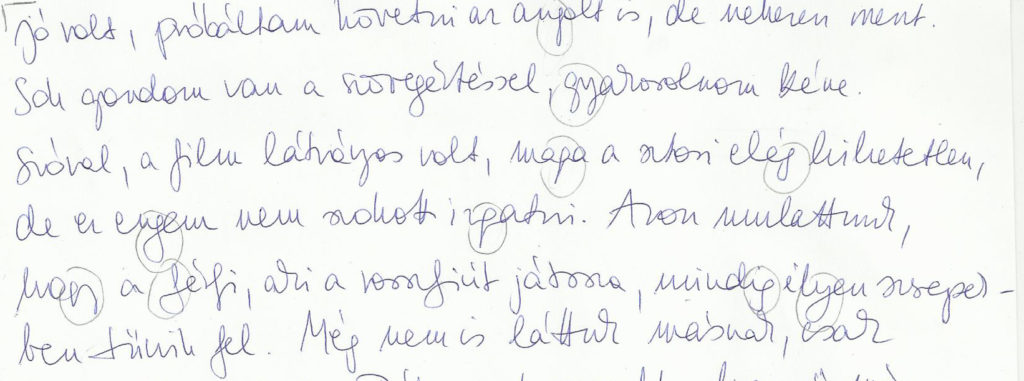 Jó volt, próbáltam követni az angolt is, de nehezen ment.
Sok gondom van a szövegértéssel, gyakorolnom kéne.
Szóval, a film látványos volt, maga a sztori elég hihetetlen,
de ez engem nem szokott izgatni. Azon mulattunk,
hogy a férfi, aki a rosszfiút játssza, mindig ilyen szerepek-
ben tűnik fel. Még nem is láttuk másnak, csak